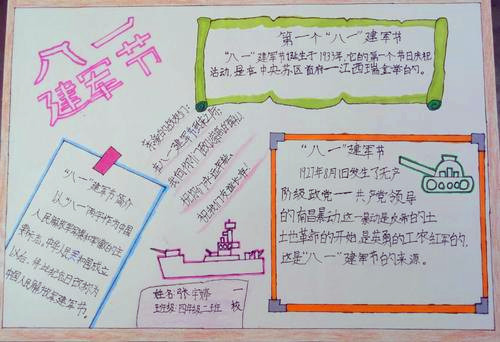 八一
建军节
第一个“八一”建军节
“八一”建军节诞生于1933年,它的第一个节日庆祝
活动,是在中央苏区首府—江西瑞金举办的。
亲爱的战友们:
在八一建军节到来之际
我向你们
祝
祝
“八一”建军节简介
以“八一”两字作为中国
人民解放军军旗和军徽的主
要标志。中华人民共和国成立
以后,将此纪念日改称为
中国人民解放军建军节。
“八一”建军节
1927年8月1日发生了无产
阶级政党——共产党领导
的南昌暴动,这一暴动是
土地革命的开始,是英勇的工农红军的,
这是“八一”建军节的来源。
姓名:张
班级:四年级二班
一校